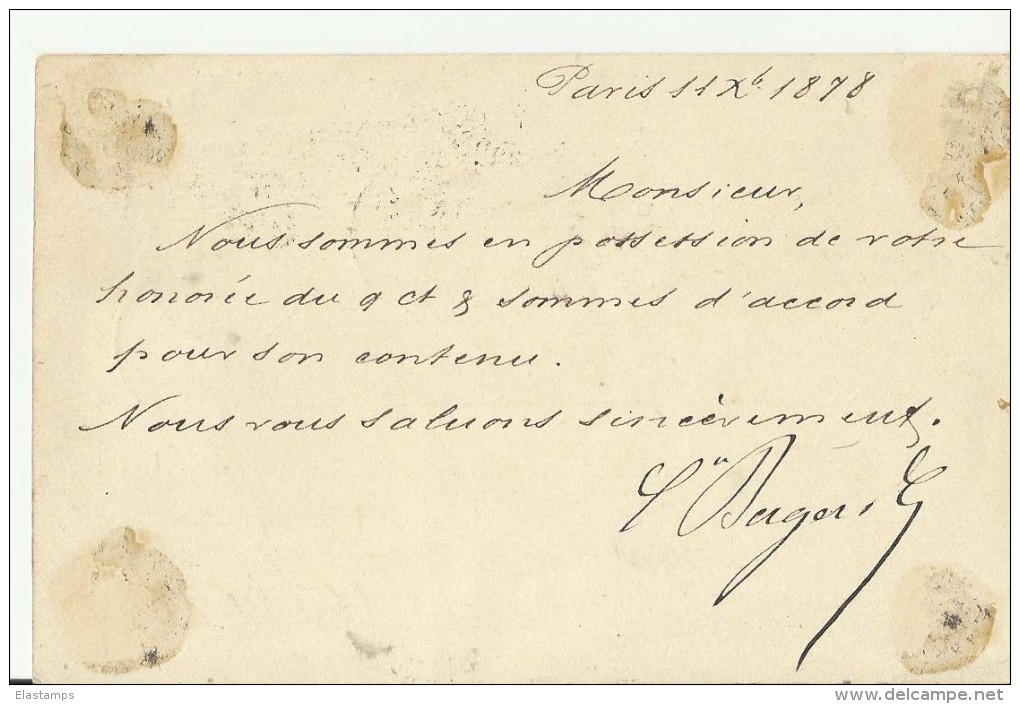 Paris 11 Xb 1878
Monsieur,
Nous sommes en possession de votre
honorée du 9 ct & sommes d'accord
pour son contenu.
Nous vous saluons sincèrement.
Elastamps
www.delcampe.net